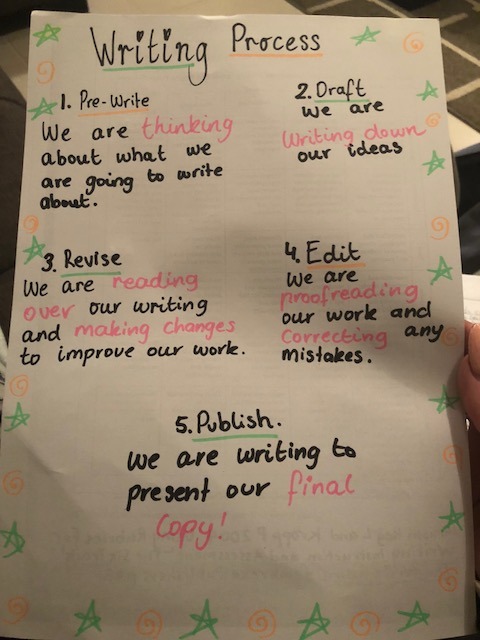 Writing Process
1. Pre-Write
We are thinking
about what we
are going to write
about.
2. Draft
we are
Writing down
our ideas
3. Revise
We are reading
over our writing
and making changes
to improve our work.
4. Edit
We are
proofreading
our work and
Correcting any
mistakes.
5. Publish.
We are writing to
present our final
Copy!